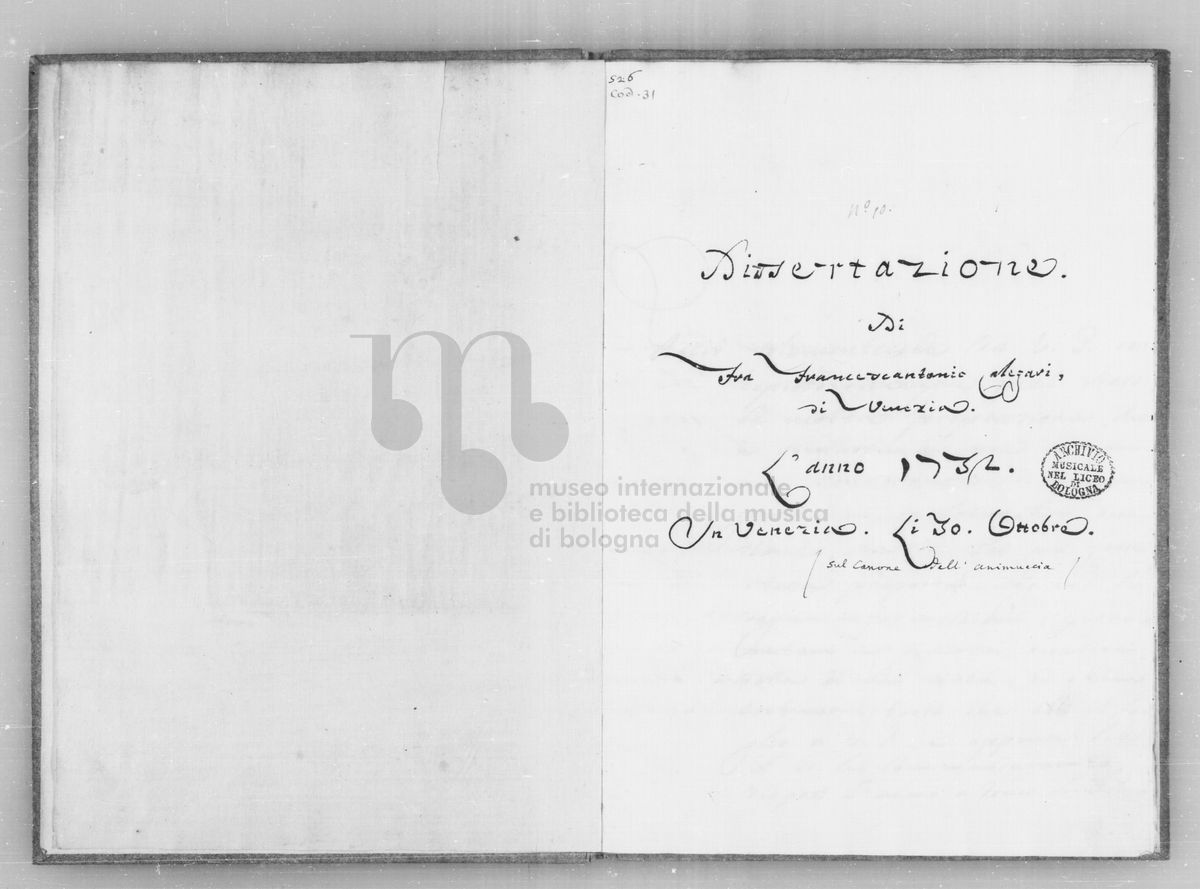 526
Cod. 31
N.º 10.
Dissertazione.
Di
Fra Francescantonio Calegari,
di Venezia.
L'anno 1732.
In Venezia. Li 30. Ottobre.
(sul Canone dell'Animuccia)
ARCHIVIO
MUSICALE
NEL LICEO
DI
BOLOGNA
museo internazionale
e biblioteca della musica
di bologna